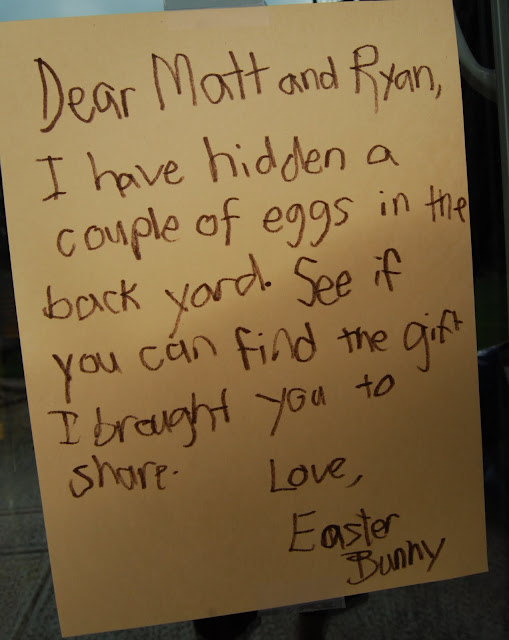 Dear Matt and Ryan,
I have hidden a
couple of eggs in the
back yard. See if
you can find the gift
I brought you to
share. Love,
Easter
Bunny